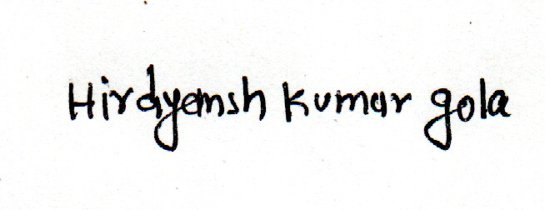 Hirdyansh Kumar gola